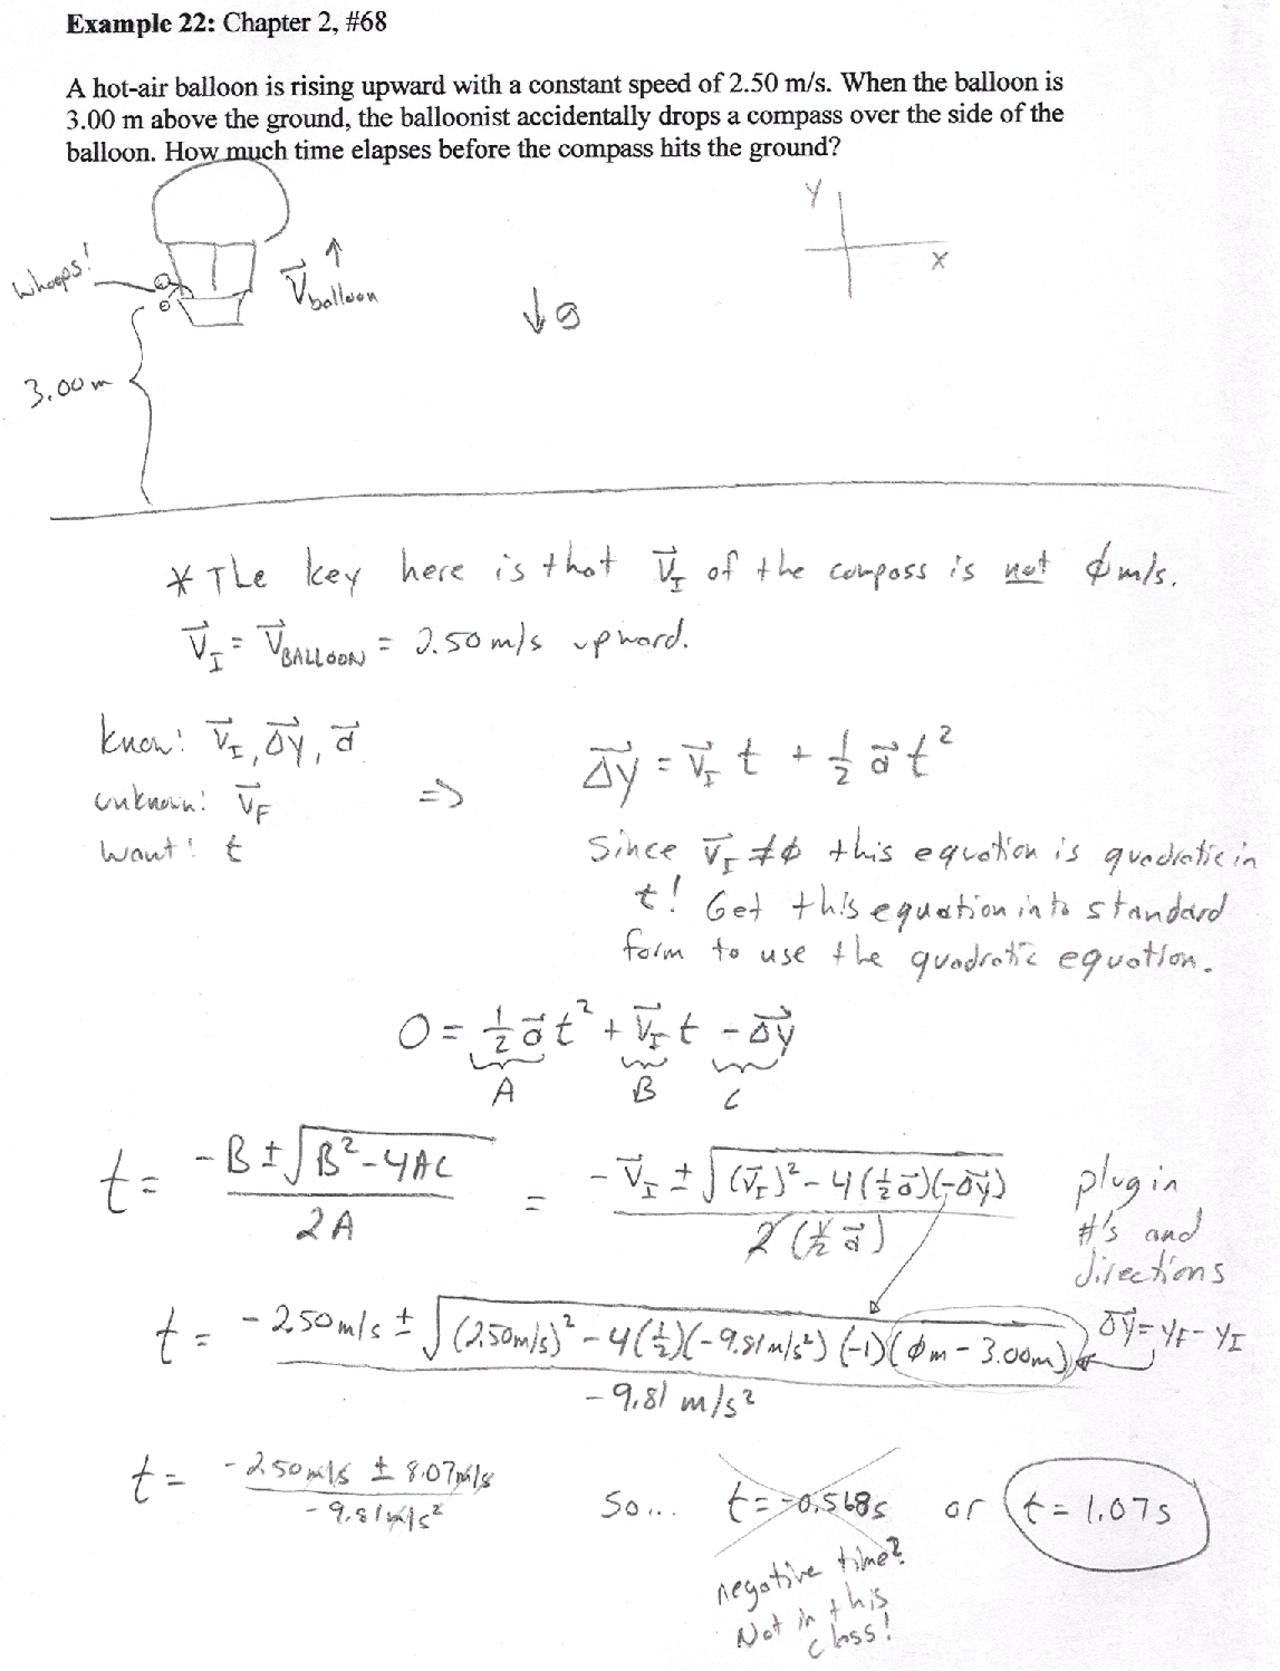 Example 22: Chapter 2, #68
A hot-air balloon is rising upward with a constant speed of 2.50 m/s. When the balloon is
3.00 m above the ground, the balloonist accidentally drops a compass over the side of the
balloon. How much time elapses before the compass hits the ground?
Y
X
Whoops!
V⃗balloon
↓ g
3.00 m
* The key here is that V⃗_I of the compass is not ∅ m/s.
V⃗_I = V⃗_BALLOON = 2.50 m/s upward.
know: V⃗_I, Δy⃗, a⃗
unknown: V⃗_F
want: t
=> Δy⃗ = V⃗_I t + 1/2 a⃗ t²
Since V⃗_I ≠ ∅ this equation is quadratic in
t! Get this equation into standard
form to use the quadratic equation.
0 = 1/2 a⃗ t² + V⃗_I t - Δy⃗
A B C
t = (-B ± √(B² - 4AC)) / 2A = (-V⃗_I ± √((V⃗_I)² - 4(1/2 a⃗)(-Δy⃗))) / 2(1/2 a⃗)
plug in
#'s and
directions
t = (-2.50 m/s ± √((2.50 m/s)² - 4(1/2)(-9.81 m/s²)(-1)(∅m - 3.00m))) / -9.81 m/s²
Δy⃗ = y_F - y_I
t = (-2.50 m/s ± 8.07 m/s) / -9.81 m/s²
So... t = -0.568s or t = 1.07s
negative time?
Not in this
class!